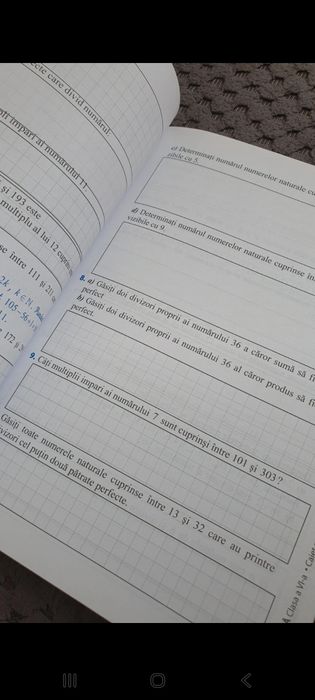 ecte care divid numărul:
impari ai numărului 11
și 193 este
multiplii al lui 12 cuprinși
între 111 și 211
2k, k ∈ N.
172 și
c) Determinați numărul numerelor naturale
zibile cu 5.
d) Determinați numărul numerelor naturale cuprinse
vizibile cu 9.
8. a) Găsiți doi divizori proprii ai numărului 36 a căror sumă să fi
perfect
b) Găsiți doi divizori proprii ai numărului 36 al căror produs să fi
perfect.
9. Câți multiplii impari ai numărului 7 sunt cuprinși între 101 și 303?
Găsiți toate numerele naturale cuprinse între 13 și 32 care au printre
divizori cel puțin două pătrate perfecte.
Clasa a VI-a • Caiet